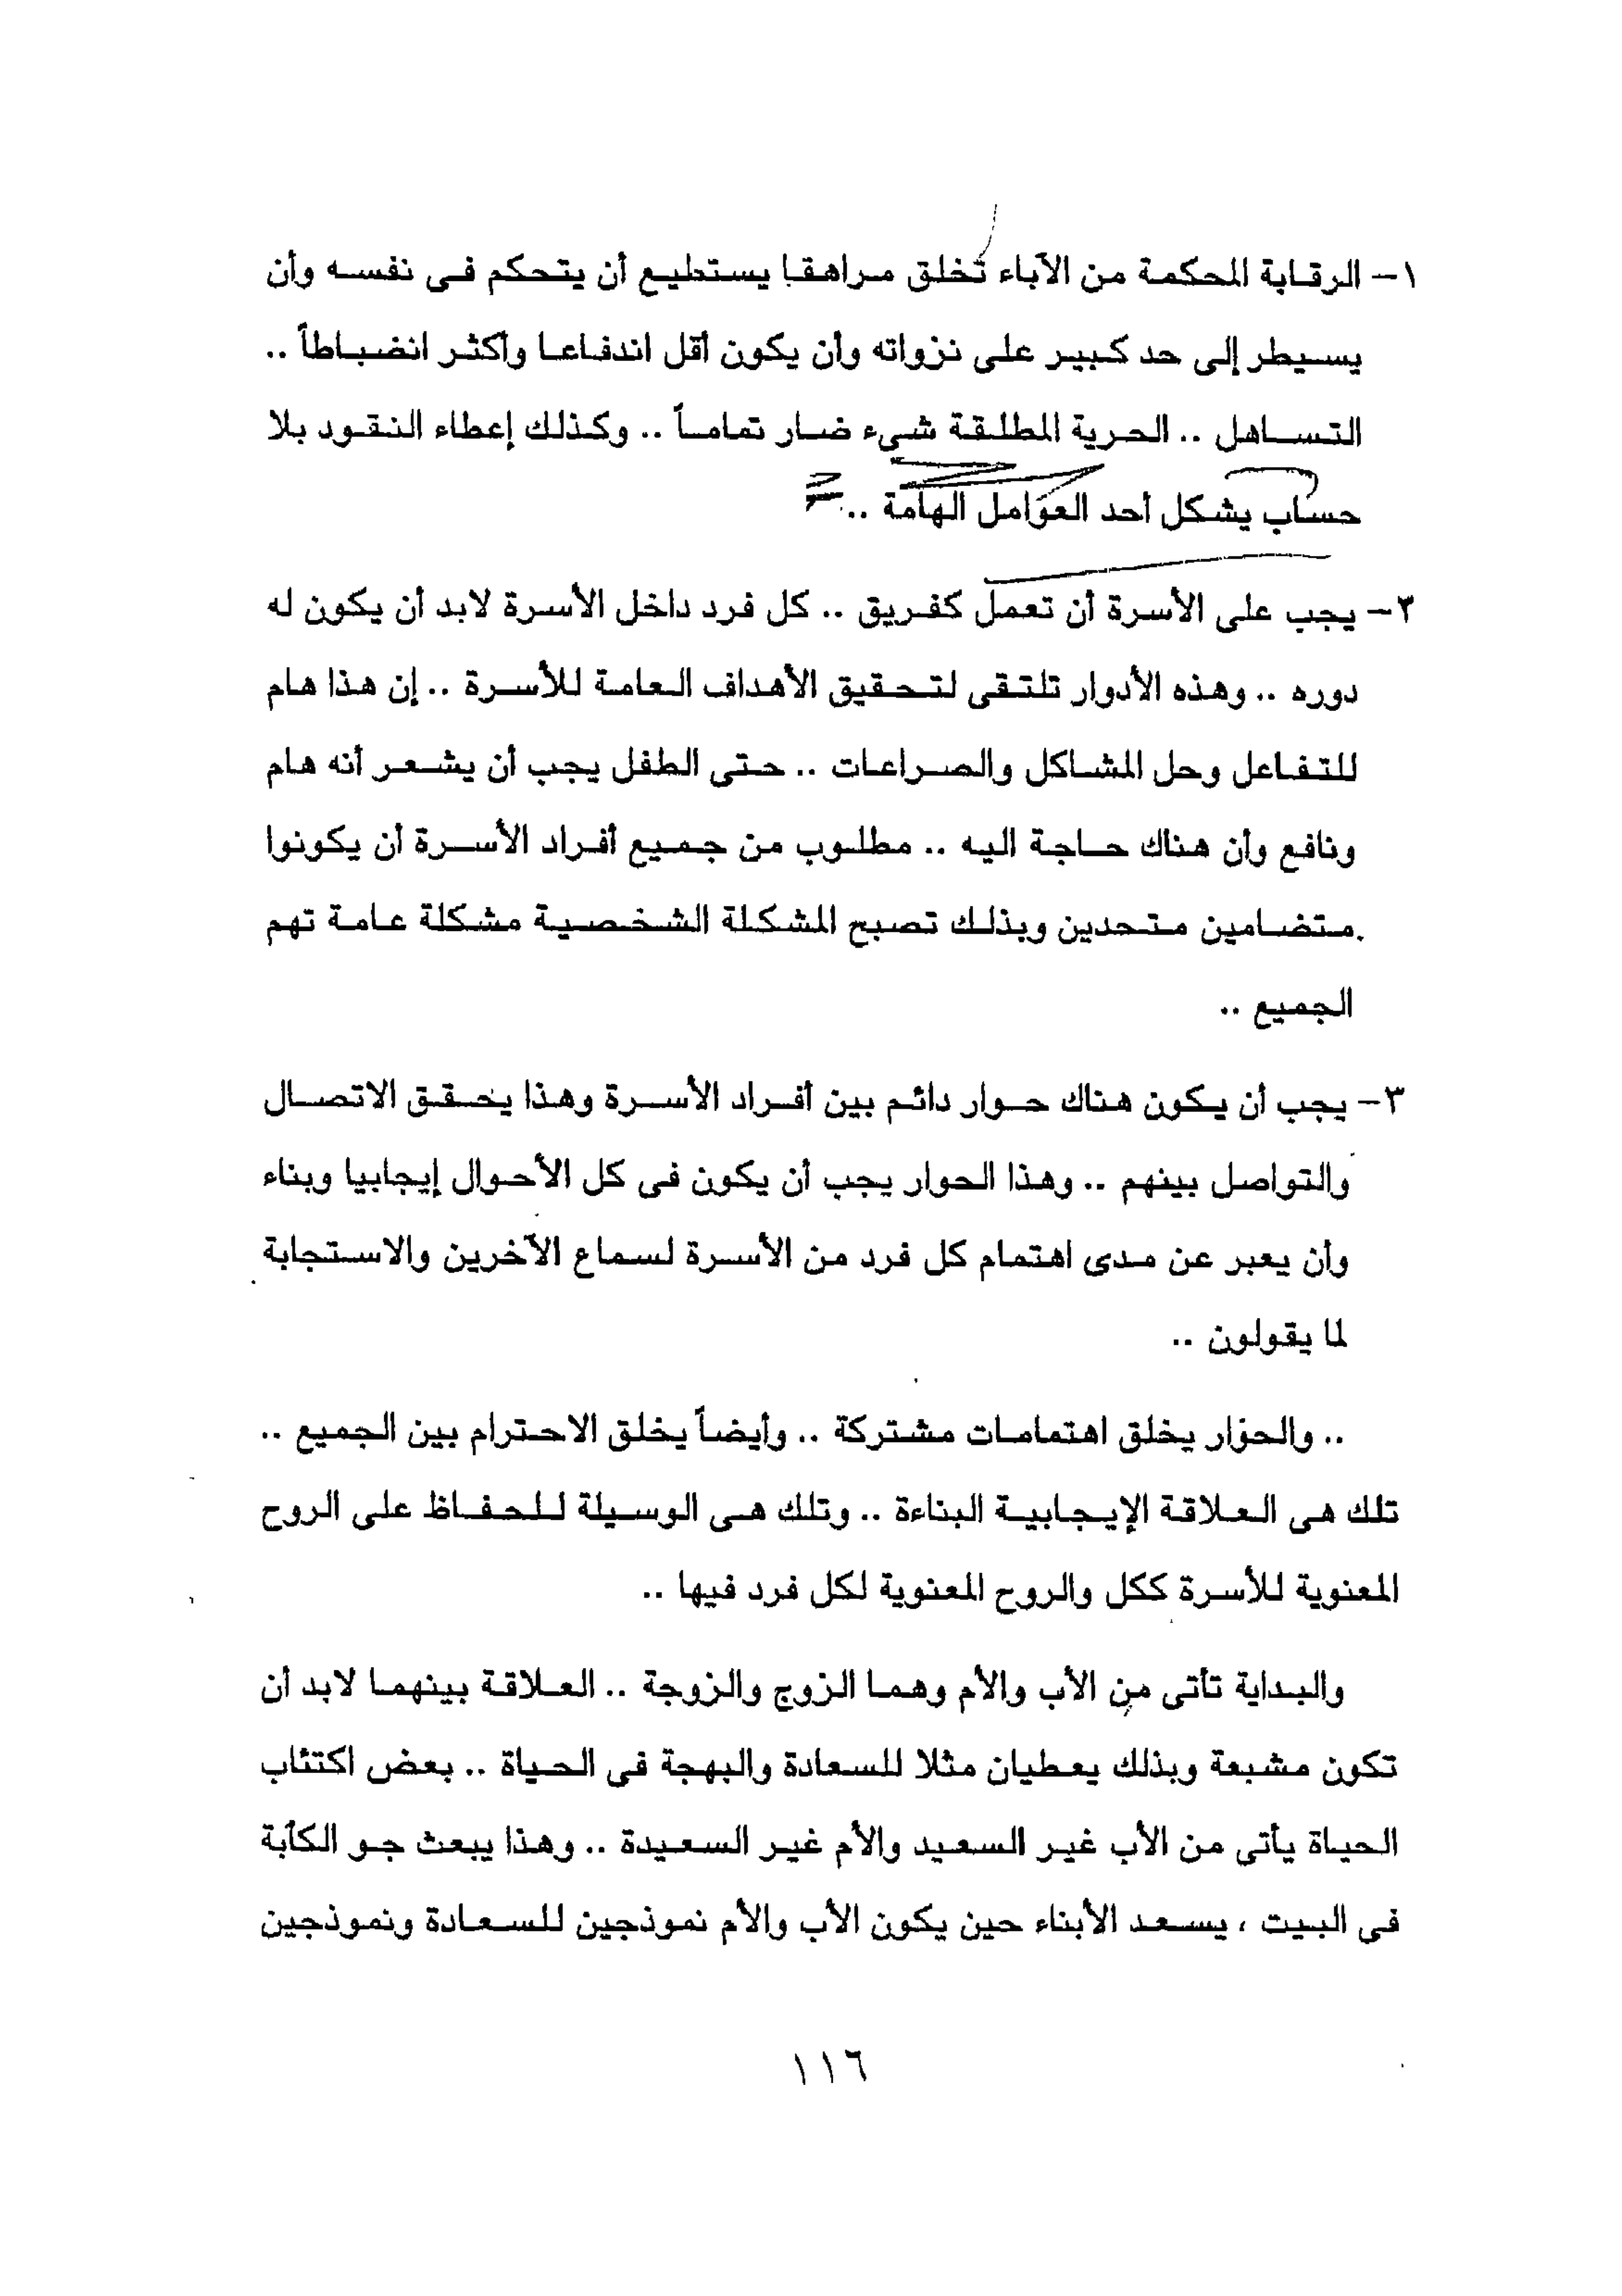 ١- الرقابة المحكمة من الآباء تخلق مراهقا يستطيع أن يتحكم فى نفسه وأن
يسيطر إلى حد كبير على نزواته وأن يكون أقل اندفاعا وأكثر انضباطاً ..
التساهل .. الحرية المطلقة شىء ضار تماماً .. وكذلك إعطاء النقود بلا
حساب يشكل أحد العوامل الهامة ..
٢- يجب على الأسرة أن تعمل كفريق .. كل فرد داخل الأسرة لابد أن يكون له
دوره .. وهذه الأدوار تلتقى لتحقيق الأهداف العامة للأسرة .. إن هذا هام
للتفاعل وحل المشاكل والصراعات .. حتى الطفل يجب أن يشعر أنه هام
ونافع وأن هناك حاجة اليه .. مطلوب من جميع أفراد الأسرة أن يكونوا
متضامين متحدين وبذلك تصبح المشكلة الشخصية مشكلة عامة تهم
الجميع ..
٣- يجب أن يكون هناك حوار دائم بين أفراد الأسرة وهذا يحقق الاتصال
والتواصل بينهم .. وهذا الحوار يجب أن يكون فى كل الأحوال إيجابيا وبناء
وأن يعبر عن مدى اهتمام كل فرد من الأسرة لسماع الآخرين والاستجابة
لما يقولون ..
.. والحوار يخلق اهتمامات مشتركة .. وأيضاً يخلق الاحترام بين الجميع ..
تلك هى العلاقة الإيجابية البناءة .. وتلك هى الوسيلة للحفاظ على الروح
المعنوية للأسرة ككل والروح المعنوية لكل فرد فيها ..
والبداية تأتى من الأب والأم وهما الزوج والزوجة .. العلاقة بينهما لابد أن
تكون مشبعة وبذلك يعطيان مثلا للسعادة والبهجة فى الحياة .. بعض اكتئاب
الحياة يأتى من الأب غير السعيد والأم غير السعيدة .. وهذا يبعث جو الكآبة
فى البيت ، يسعد الأبناء حين يكون الأب والأم نموذجين للسعادة ونموذجين
١١٦